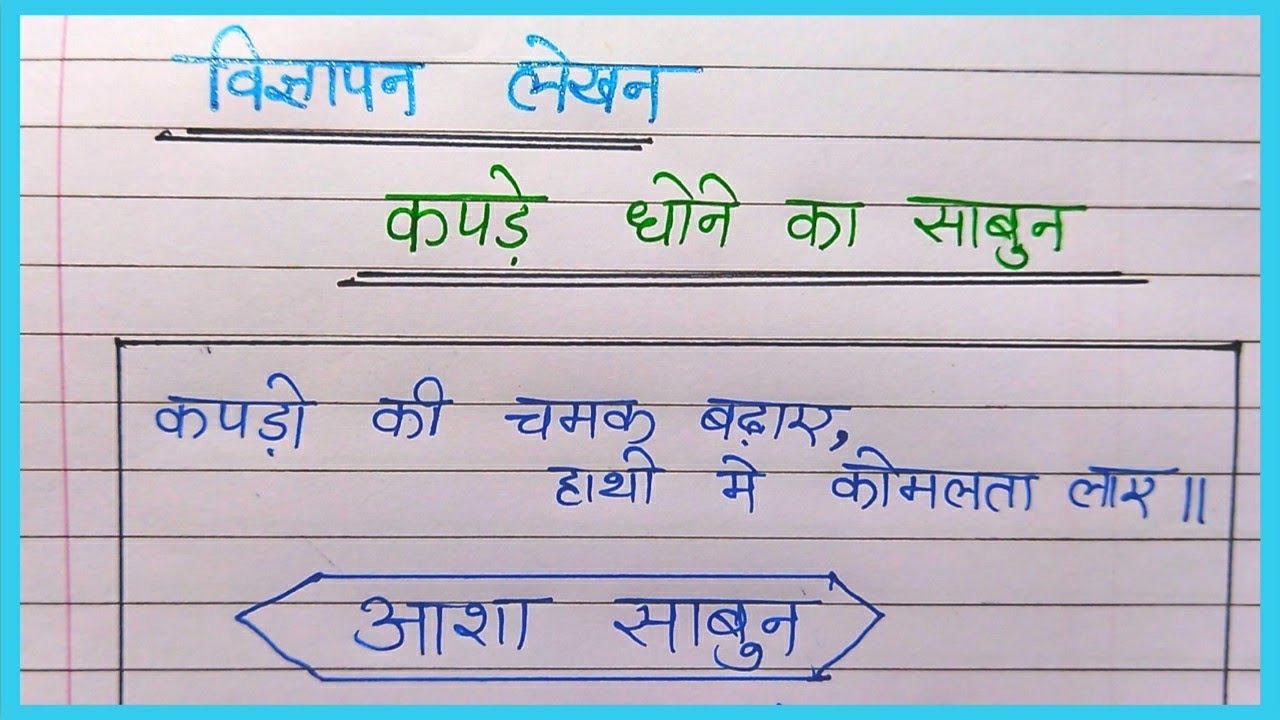 विज्ञापन लेखन
कपड़े धोने का साबुन
कपड़ो की चमक बढ़ाए,
हाथो मे कोमलता लाए॥
आशा साबुन